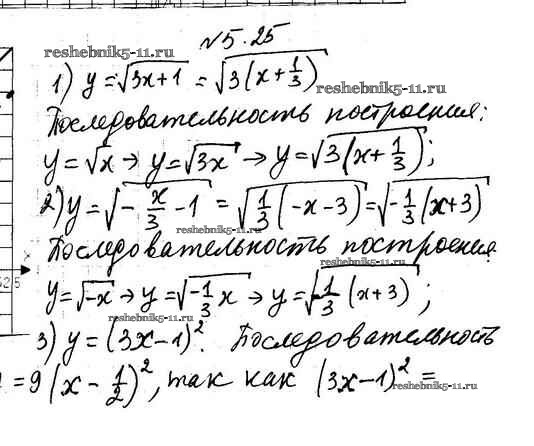 №5.25
reshebnik5-11.ru
1) y = √3x+1 = √3(x+1/3)
reshebnik5-11.ru
Последовательность построения:
y=√x → y=√3x → y=√3(x+1/3);
2) y=√-x/3-1 = √1/3(-x-3) = √-1/3(x+3)
reshebnik5-11.ru
Последовательность построения
reshebnik5-11.ru
y=√-x → y=√-1/3x → y=√-1/3(x+3);
reshebnik5-11.ru
3) y=(3x-1)². Последовательность
=9(x-1/2)², так как (3x-1)²=
reshebnik5-11.ru